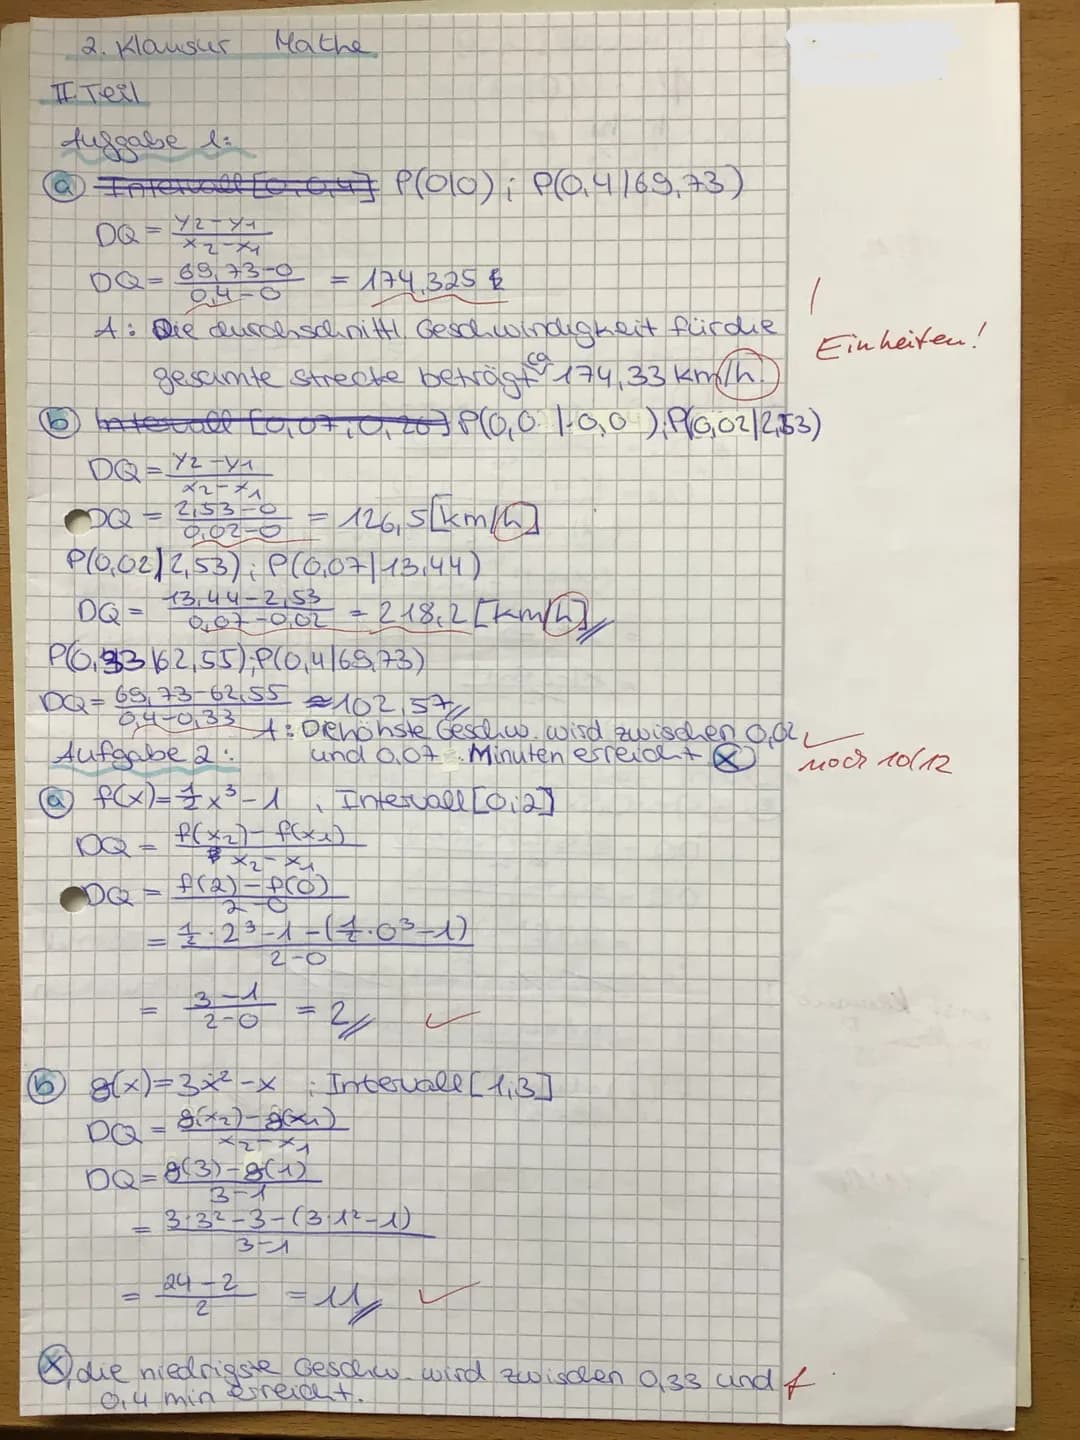 2. Klausur Mathe
II. Teil
Aufgabe 1:
a) Intervall [0; 0,4] P(0|0); P(0,4|69,73)
DQ = y2-y1 / x2-x1
DQ = 69,73-0 / 0,4-0 = 174,325
A: Die durchschnittl. Geschwindigkeit für die
gesamte Strecke beträgt ca 174,33 km/h.
Einheiten!
b) Intervall [0,07; 0,26] P(0,0|0,0); P(0,02|2,53)
DQ = y2-y1 / x2-x1
DQ = 2,53-0 / 0,02-0 = 126,5 [km/h]
P(0,02|2,53); P(0,07|13,44)
DQ = 13,44-2,53 / 0,07-0,02 = 218,2 [km/h]
P(0,33|62,55); P(0,4|69,73)
DQ = 69,73-62,55 / 0,4-0,33 ≈ 102,57
A: Die höhste Geschw. wird zwischen 0,02
und 0,07 Minuten erreicht ⓧ
noch 10/12
Aufgabe 2:
a) f(x)=1/2x³-1, Intervall [0;2]
DQ = f(x2)-f(x1) / x2-x1
DQ = f(2)-f(0) / 2-0
= 1/2·2³-1-(1/2·0³-1) / 2-0
= 3-1 / 2-0 = 2
b) g(x)=3x²-x; Intervall [1;3]
DQ = g(x2)-g(x1) / x2-x1
DQ = g(3)-g(1) / 3-1
= 3·3²-3-(3·1²-1) / 3-1
= 24-2 / 2 = 11
ⓧ die niedrigste Geschw. wird zwischen 0,33 und f
0,4 min erreicht.